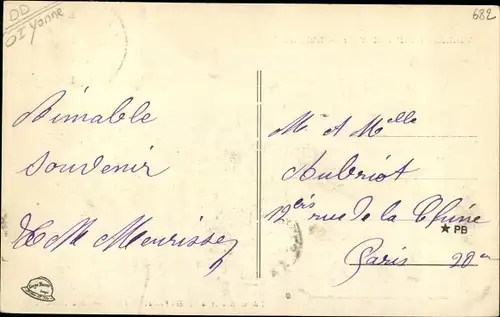 DD
01 Yonne
682
Aimable
souvenir
M Meurisse
Mr et Melle
Aubriot
12bis rue de la Chine
★ PB
Paris 20e